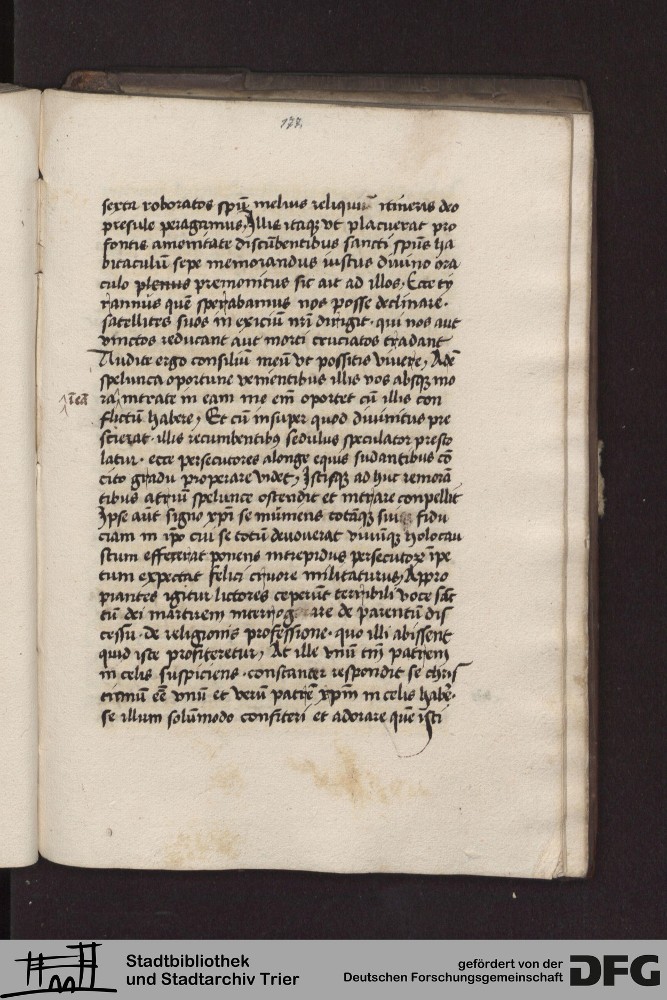 177
sexta roboratos spũ melius reliquũ itineris deo
presule peragamus, Illis itaqꝫ vt placuerat pro
fontis amenitate discũbentibus sancti spũs ha
bitaculũ sepe memorandus iustus diuino ora
culo plenus premonitus sic ait ad illos, Ecce ty
rannus quẽ sperabamus nos posse declinare.
satellites suos in exiciũ nr̃i dirigit. qui nos aut
vinctos reducant aut morti cruciatos tradant
Audite ergo consiliũ meũ vt possitis viuere, Adẽ
spelunca oportune venientibus illis vos absqꝫ mo
ĩ eã
ra intrate in eam me em̃ oportet cũ illis con
flictũ habere, Et cũ insuper quod diuinitus pre
scierat. illis recumbentibꝰ sedulus speculator presto
latur. ecce persecutores alonge equis sudantibus cõ
cito gradu properare videt, Istisqꝫ ad huc remorã
tibus atriũ spelunce ostendit et intrare conpellit
Ipse aut̃ signo xp̃i se mũmens totãqꝫ suã fidu
ciam in ip̃o cui se totũ deuouerat viuũqꝫ holocau
stum effecerat ponens intrepidus persecutorꝝ ĩpe
tum expectat felici cruore militaturus, Appro
piantes igitur lictores ceperũt terribili voce sãc
tũ dei martirem interrogare de parentũ dis
cessu. de religionis professione. quo illi abissent
quid iste profiteretur, At ille vnũ tm̃ patrem
in celis suspiciens. constanter respondit se chris
tianũ eẽ vnũ et verũ patrẽ xp̃m in celis habẽ.
se illum solũmodo confiteri et adorare quẽ ĩsti
Stadtbibliothek
und Stadtarchiv Trier
gefördert von der
Deutschen Forschungsgemeinschaft
DFG